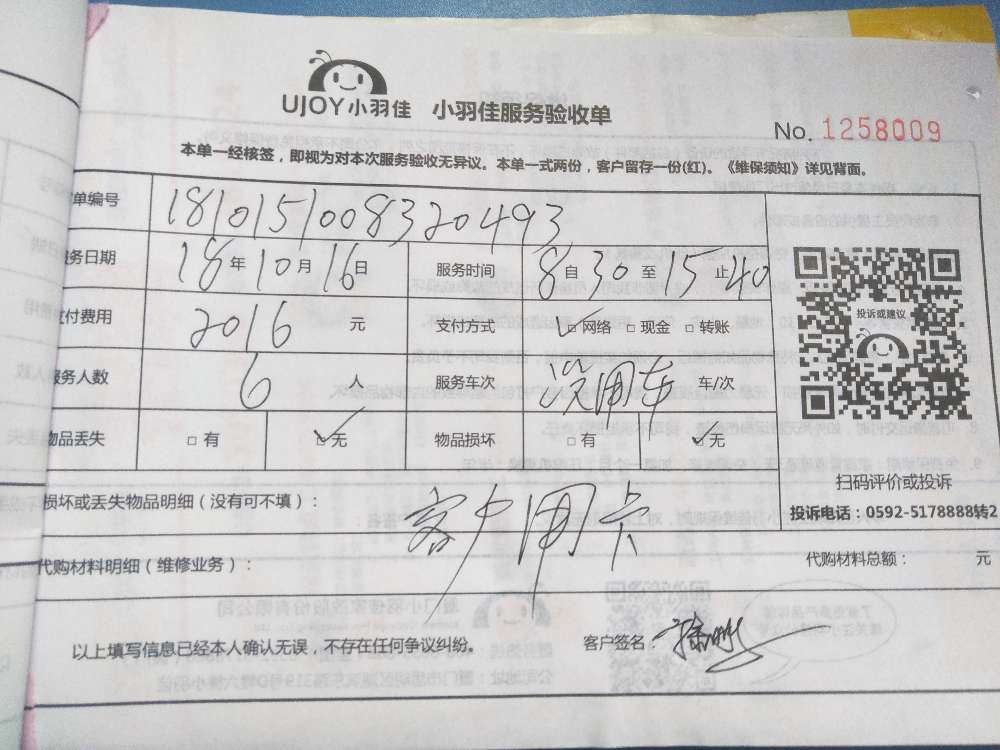 UJOY小羽佳 小羽佳服务验收单
No. 1258009
本单一经核签，即视为对本次服务验收无异议。本单一式两份，客户留存一份(红)。《维保须知》详见背面。
单编号 18101510008320493
务日期 18年10月16日 服务时间 8自30至15止40
付费用 2016 元 支付方式 ☑网络 □现金 □转账
服务人数 6 人 服务车次 用车 车/次
物品丢失 □有 ☑无 物品损坏 □有 ☑无
投诉或建议
扫码评价或投诉
投诉电话：0592-5178888转2
损坏或丢失物品明细（没有可不填）：
客户用卡
代购材料明细（维修业务）： 代购材料总额： 元
以上填写信息已经本人确认无误，不存在任何争议纠纷。 客户签名：